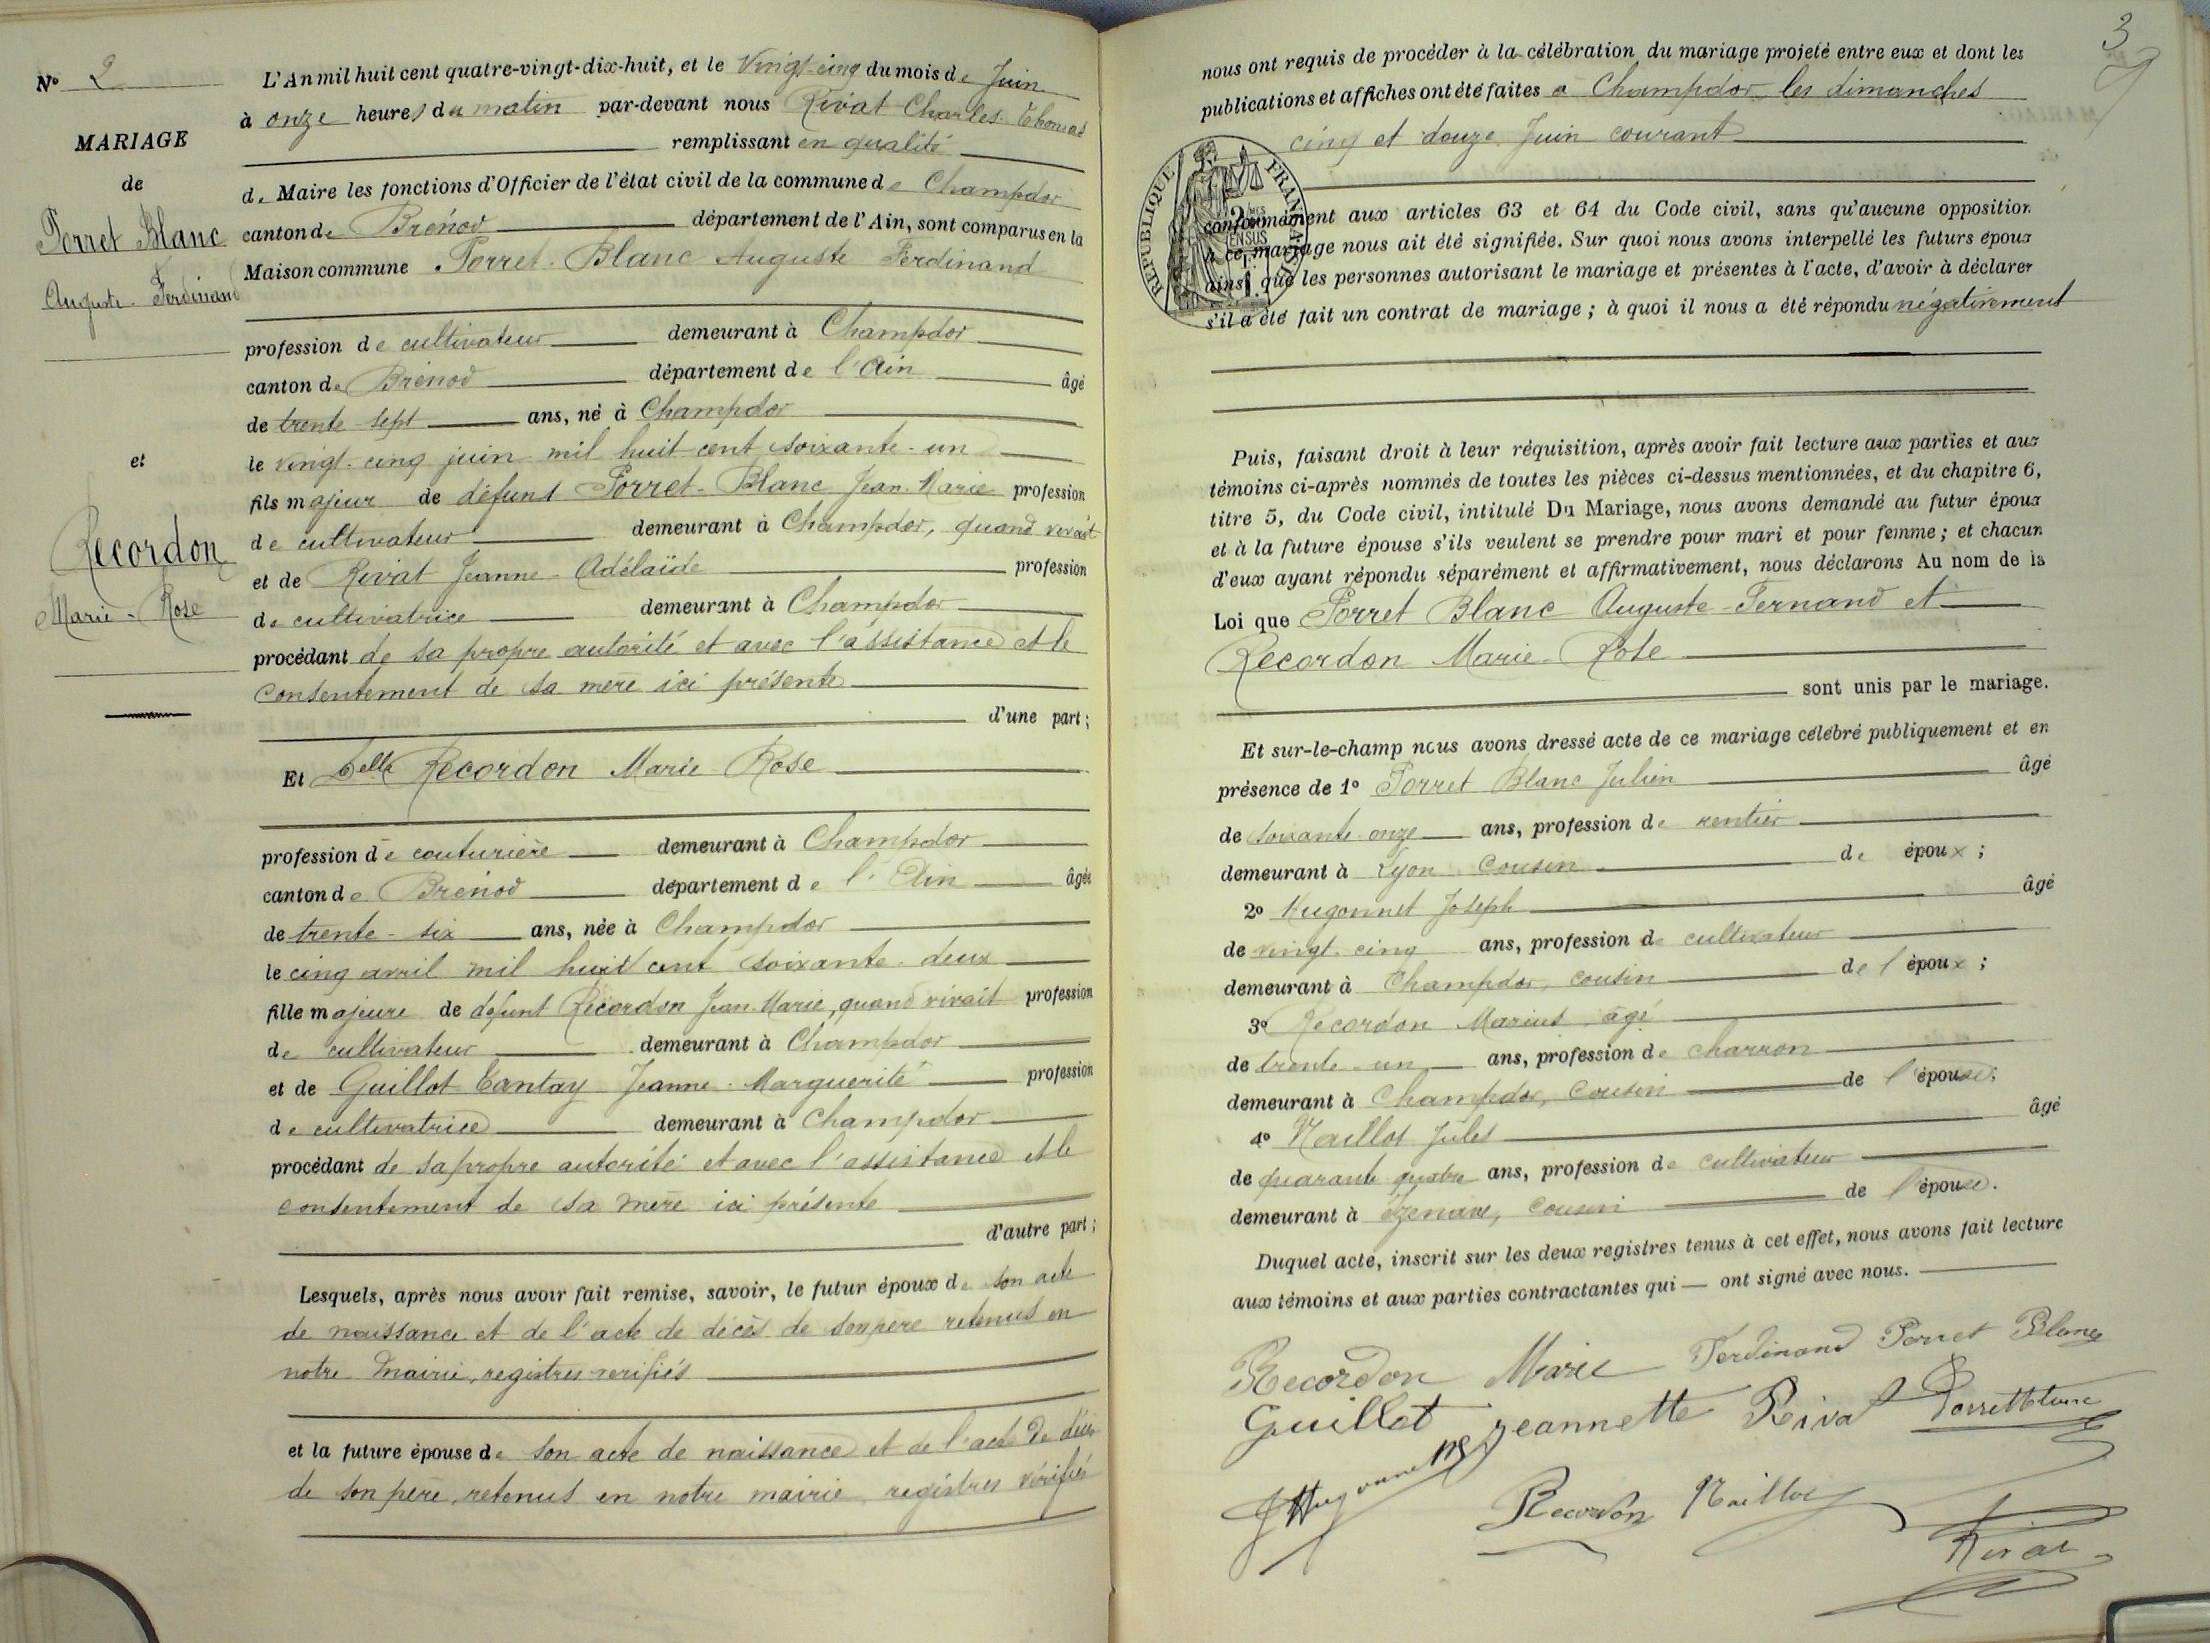 N° 2
MARIAGE
de
Porret Blanc
Auguste Ferdinand
et
Recordon
Marie-Rose
L'An mil huit cent quatre-vingt-dix-huit, et le vingt-cinq du mois de Juin
à onze heures du matin par-devant nous Rivat Charles Thomas
remplissant en qualité
de Maire les fonctions d'Officier de l'état civil de la commune de Champdor
canton de Brénod département de l'Ain, sont comparus en la
Maison commune Porret-Blanc Auguste Ferdinand
profession de cultivateur demeurant à Champdor
canton de Brénod département de l'Ain âgé
de trente-sept ans, né à Champdor
le vingt-cinq juin mil huit cent soixante-un
fils majeur de défunt Porret-Blanc Jean-Marie profession
de cultivateur demeurant à Champdor, quand vivait
et de Rivat Jeanne-Adélaïde profession
de cultivatrice demeurant à Champdor
procédant de sa propre autorité et avec l'assistance et le
consentement de sa mère ici présente
d'une part;
Et Delle Recordon Marie-Rose
profession de couturière demeurant à Champdor
canton de Brénod département de l'Ain âgée
de trente-six ans, née à Champdor
le cinq avril mil huit cent soixante-deux
fille majeure de défunt Recordon Jean-Marie, quand vivait profession
de cultivateur demeurant à Champdor
et de Guillot Tantay Jeanne-Marguerite profession
de cultivatrice demeurant à Champdor
procédant de sa propre autorité et avec l'assistance et le
consentement de sa mère ici présente
d'autre part;
Lesquels, après nous avoir fait remise, savoir, le futur époux de son acte
de naissance et de l'acte de décès de son père retenus en
notre Mairie, registres verifiés
et la future épouse de son acte de naissance et de l'acte de décès
de son père, retenus en notre mairie, registres vérifiés
3
nous ont requis de procéder à la célébration du mariage projeté entre eux et dont les
publications et affiches ont été faites à Champdor les dimanches
cinq et douze Juin courant
RÉPUBLIQUE FRANÇAISE
conformément aux articles 63 et 64 du Code civil, sans qu'aucune opposition
à ce mariage nous ait été signifiée. Sur quoi nous avons interpellé les futurs époux
ainsi que les personnes autorisant le mariage et présentes à l'acte, d'avoir à déclarer
s'il a été fait un contrat de mariage; à quoi il nous a été répondu négativement
Puis, faisant droit à leur réquisition, après avoir fait lecture aux parties et aux
témoins ci-après nommés de toutes les pièces ci-dessus mentionnées, et du chapitre 6,
titre 5, du Code civil, intitulé Du Mariage, nous avons demandé au futur époux
et à la future épouse s'ils veulent se prendre pour mari et pour femme; et chacun
d'eux ayant répondu séparément et affirmativement, nous déclarons Au nom de la
Loi que Porret Blanc Auguste-Fernand et
Recordon Marie-Rose
sont unis par le mariage.
Et sur-le-champ nous avons dressé acte de ce mariage célébré publiquement et en
présence de 1° Porret Blanc Julien âgé
de soixante-onze ans, profession de rentier
demeurant à Lyon cousin de époux;
2° Hugonnet Joseph âgé
de vingt-cinq ans, profession de cultivateur
demeurant à Champdor, cousin de l'époux;
3° Recordon Marius, âgé
de trente-un ans, profession de charron
demeurant à Champdor, cousin de l'épouse;
4° Maillot Jules âgé
de quarante-quatre ans, profession de cultivateur
demeurant à cousin de l'épouse.
Duquel acte, inscrit sur les deux registres tenus à cet effet, nous avons fait lecture
aux témoins et aux parties contractantes qui — ont signé avec nous.
Recordon Marie Ferdinand Porret Blanc
Guillot jeannette Rivat Porret Blanc
J Hugonnet Recordon Maillot
Rivat